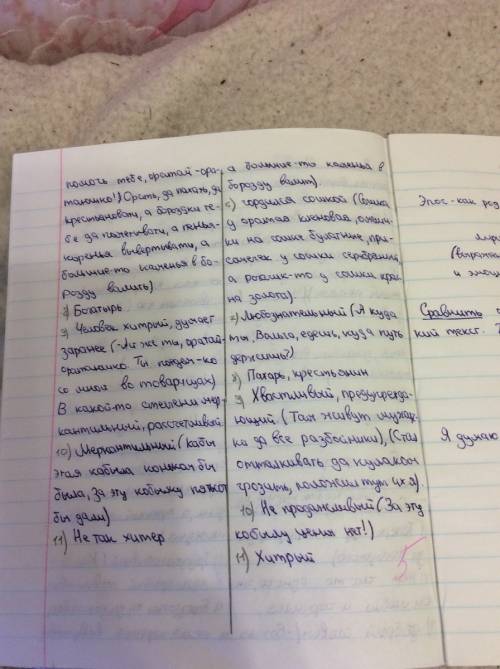 помочь тебе, оратай-ора-
таюшко!) Орать, да пахать, да
крестьяновати, а бороздки те-
бе да пометывати, а пенья-
коренья вывертывати, а
большие-то каменья в бо-
розду валить)
8) Богатырь
9) Человек хитрый, думает
заранее (-Ай же ты, оратай-
оратаюшко. Ты поедем-ко
со мной во товарищах)
В какой-то степени мер-
кантильный, рассчетливый.
10) Меркантильный (кабы
этая кобыла коньком бы
была, За эту кобылку пятьсот
бы дали)
11) Не так хитер
а большие-то каменья в
борозду валит).
6) гордился сошкой (Сошка
у оратая кленовая, омеши-
ки на сошке булатные, при-
сошечек у сошки серебряный,
а рогачик-то у сошки крас-
на золота).
7) Любознательный (А куда
ты, Вольга, едешь, куда путь
держишь?)
8) Пахарь, крестьянин
9) Хвастливый, предупрежда-
ющий (Там живут мужич-
ки да все разбойники), (Стал
отталкивать да кулаком
грозить, положил тут их я).
10) Не продажливый (За эту
кобылу цены нет!)
11) Хитрый
5
Эпос - как род
и эмоц
Сравнить
кий текст.
Я думаю